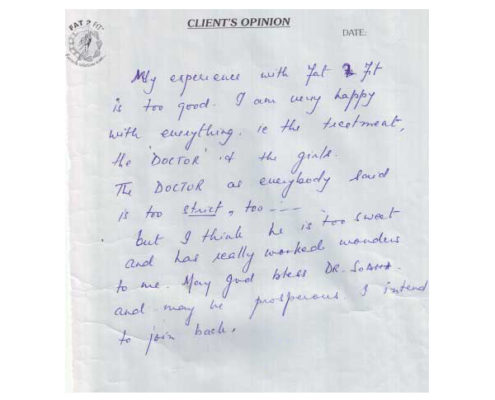 FAT 2 FIT
CLIENT'S OPINION
DATE:
My experience with Fat 2 Fit
is too good. I am very happy
with everything. ie the treetment,
the 'DOCTOR' & the girls.
The DOCTOR as everybody said
is too strict, too ----
but I think he is too sweet
and has really worked wonders
to me. May god bless DR.
and may be prosperous I intend
to join back.